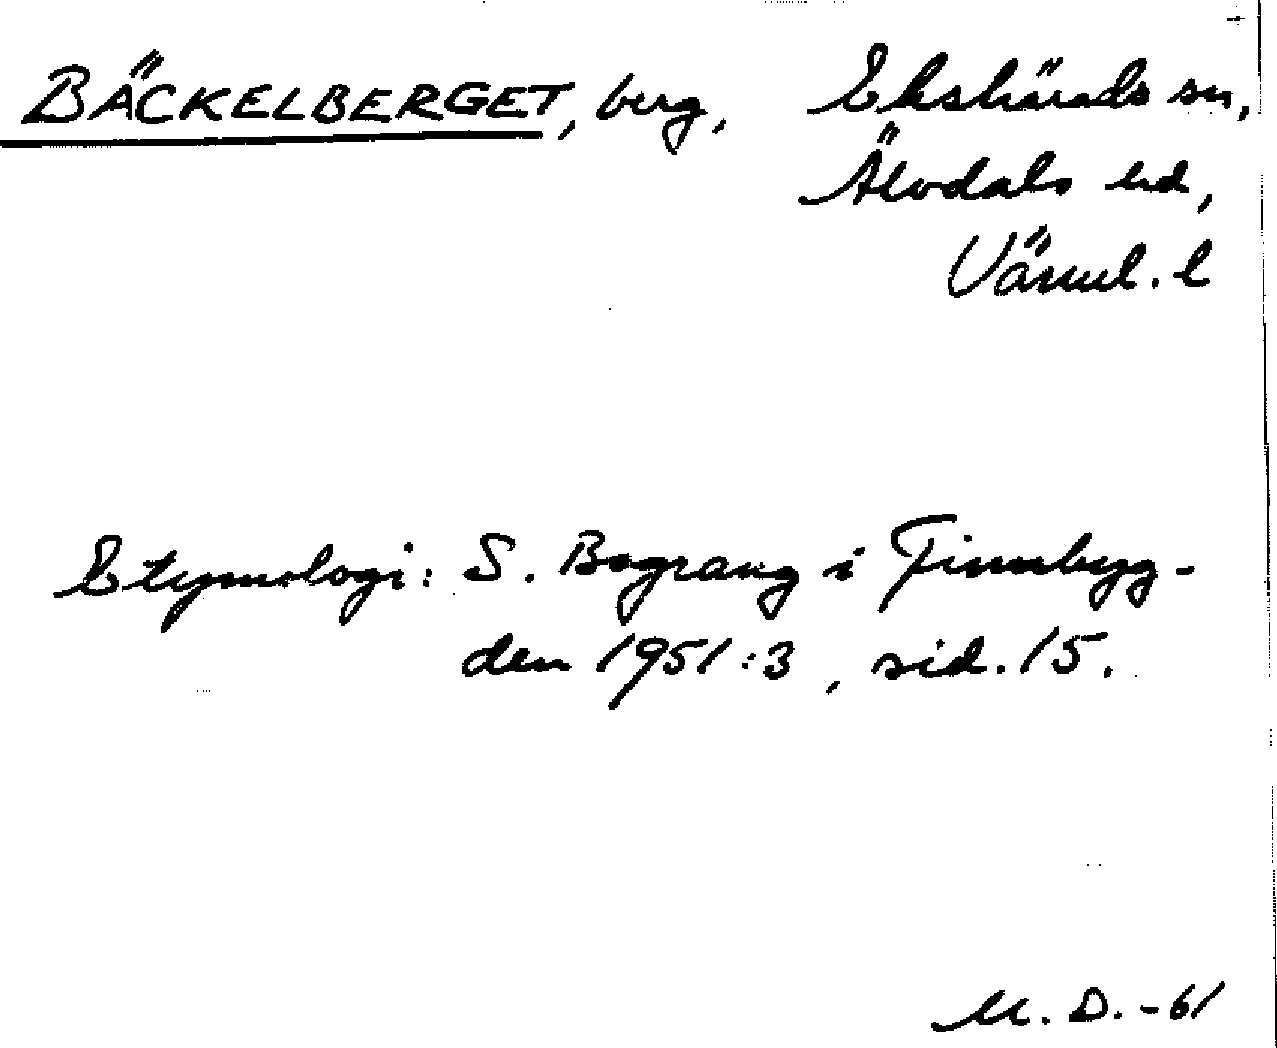 BÄCKELBERGET, berg, Ekshärads sn,
Älvdals hd,
Värml. l
Etymologi: S. Bograng i Finnbyg-
den 1951:3, sid. 15.
M. D. -61